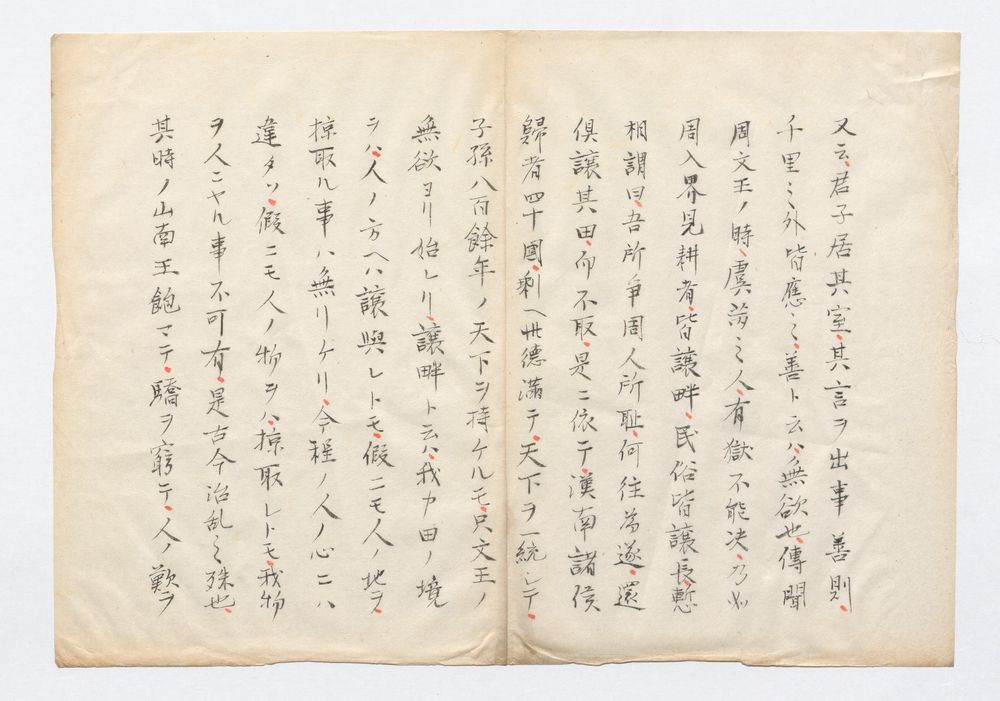 又云、君子居其室、其言ヲ出事 善則、
千里之外皆應之、善ト云ハ、無欲也、傳聞
周文王ノ時、虞芮之人、有獄不能决、乃如
周入界見耕者、皆讓畔、民俗皆讓長、慙
相謂曰、吾所争周人所耻、何往為、遂還
俱讓其田、而不取、是ニ依テ、漢南諸侯
歸者四十國、剰ヘ其德満テ、天下ヲ一統シテ、
子孫八百餘年ノ天下ヲ持ケルモ、只文王ノ
無欲ヨリ始レリ、讓畔ト云ハ、我カ田ノ境
ヲハ、人ノ方ヘハ讓與レトモ、假ニモ人ノ地ヲ、
掠取ル事ハ無リケリ、今程ノ人ノ心ニハ
違タソ、假ニモ人ノ物ヲハ、掠取レトモ、我物
ヲ人ニヤル事不可有、是古今治乱之殊也、
其時ノ山南王飽マテ、驕ヲ窮テ、人ノ歎ヲ